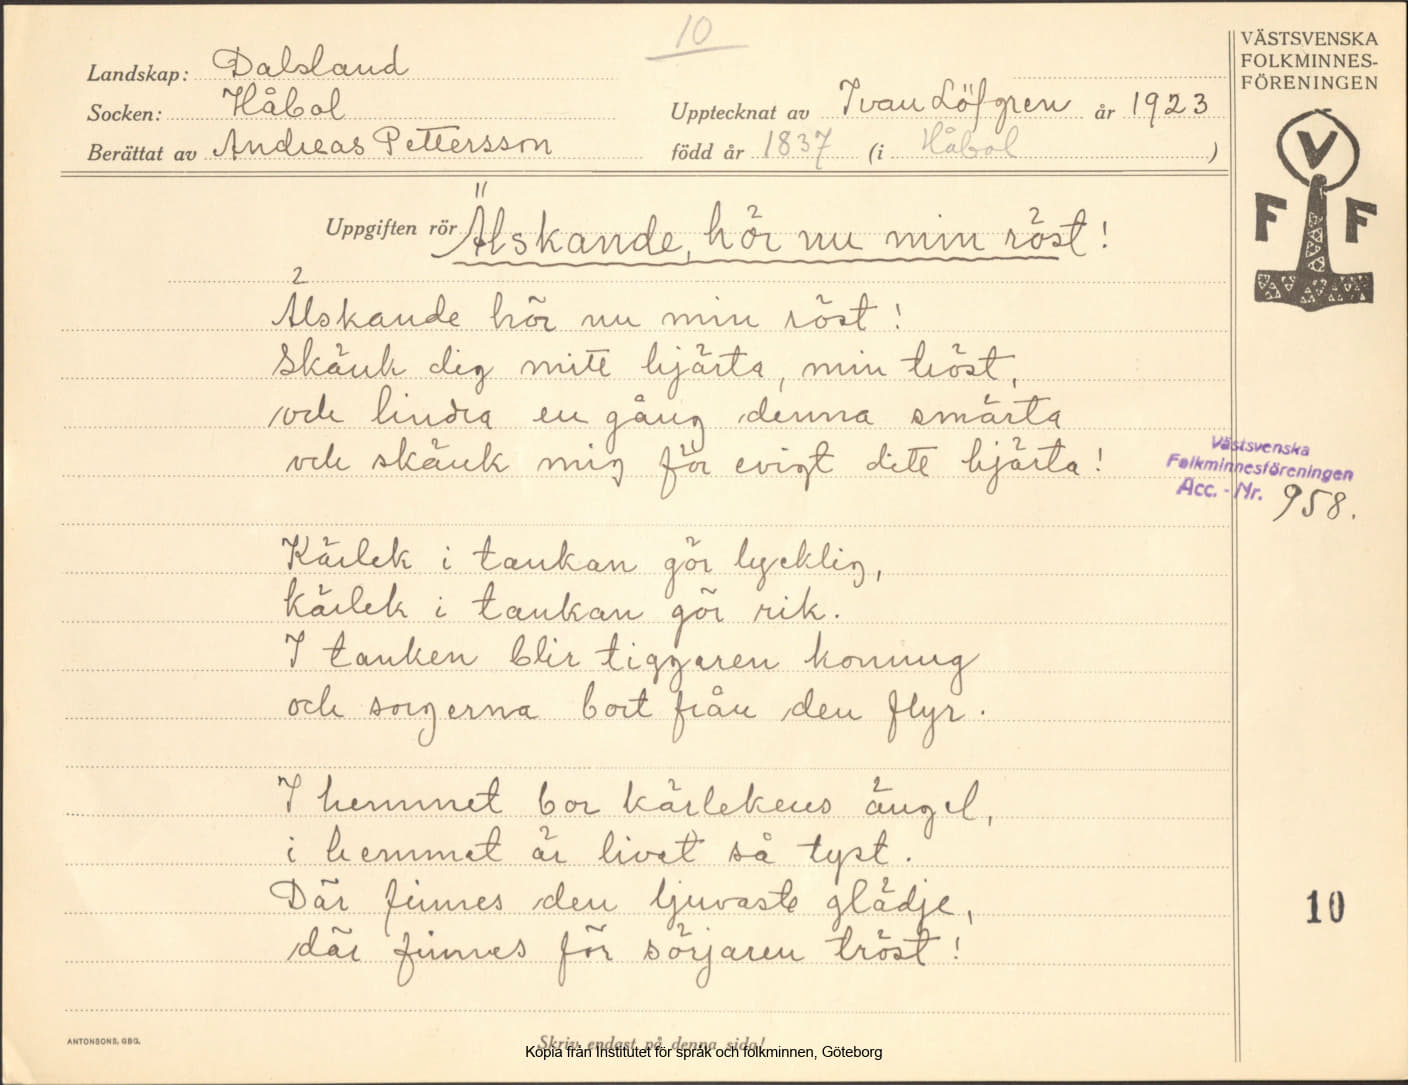 10
Landskap: Dalsland
Socken: Håbol
Upptecknat av Ivan Löfgren år 1923
Berättat av Andreas Pettersson
född år 1837 (i Håbol)
VÄSTSVENSKA
FOLKMINNES-
FÖRENINGEN
V
F F
Uppgiften rör Älskande, hör nu min röst!
Älskande hör nu min röst!
Skänk dig mitt hjärta, min tröst,
och lindra en gång denna smärta
och skänk mig för evigt ditt hjärta!
Västsvenska
Folkminnesföreningen
Acc.-Nr. 958.
Kärlek i tankan gör lycklig,
kärlek i tankan gör rik.
I tanken blir tiggaren konung
och sorgerna bort från den flyr.
I hemmet bor kärlekens ängel,
i hemmet är livet så tyst.
Där finnes den ljuvaste glädje,
där finnes för sörjaren tröst!
10
ANTONSONS, GBG.
Skriv endast på denna sida!
Kopia från Institutet för språk och folkminnen, Göteborg